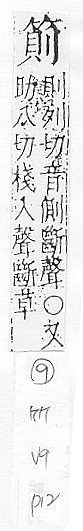 則列切音側斷聲○又
助瓜切棧入聲斷草
⑨
77
V9
P12